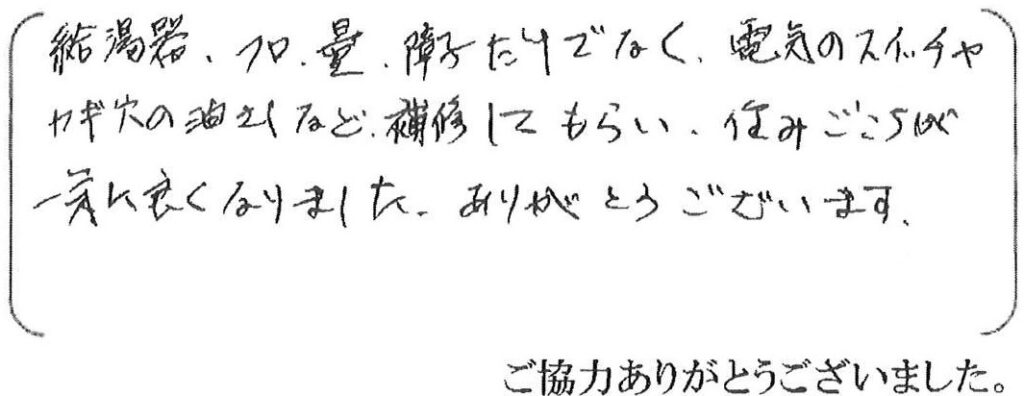 給湯器、フロ、畳、障子だけでなく、電気のスイッチや
カギ穴の油さしなど、補修してもらい、住みごこちが
一気に良くなりました。ありがとうございます。
ご協力ありがとうございました。